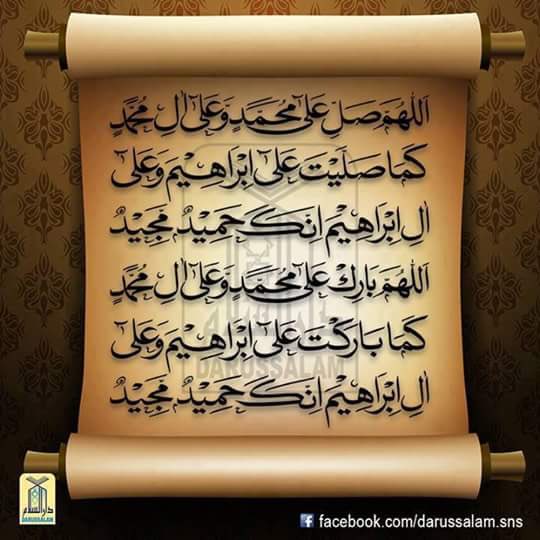 اَللّٰهُمَّ صَلِّ عَلٰى مُحَمَّدٍ وَّعَلٰى اٰلِ مُحَمَّدٍ
كَمَا صَلَّيْتَ عَلٰى اِبْرَاهِيْمَ وَعَلٰى
اٰلِ اِبْرَاهِيْمَ اِنَّكَ حَمِيْدٌ مَّجِيْدٌ
اَللّٰهُمَّ بَارِكْ عَلٰى مُحَمَّدٍ وَّعَلٰى اٰلِ مُحَمَّدٍ
كَمَا بَارَكْتَ عَلٰى اِبْرَاهِيْمَ وَعَلٰى
اٰلِ اِبْرَاهِيْمَ اِنَّكَ حَمِيْدٌ مَّجِيْدٌ
DARUSSALAM
دار السلام
DARUSSALAM
facebook.com/darussalam.sns